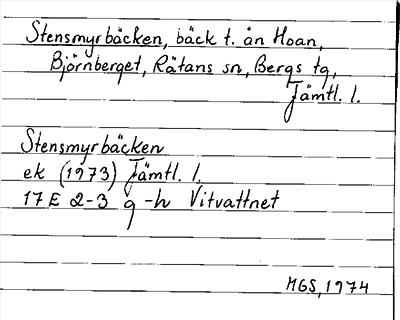 Stensmyrbäcken, bäck t. ån Hoan,
Björnberget, Rätans sn, Bergs tg,
Jämtl. l.
Stensmyrbäcken
ek (1973) Jämtl. l.
17 E 2-3 g-h Vitvattnet
MGS, 1974